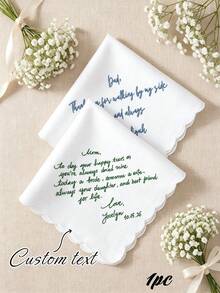 Dad,
Thank for walking by my side
and always
Mom,
to day your happy tears as
you're always dried mine.
today a bride, tomorrow a wife,
always your daughter, and best friend
for life.
love,
Jocelyn 10.15.26
Custom text
1pc